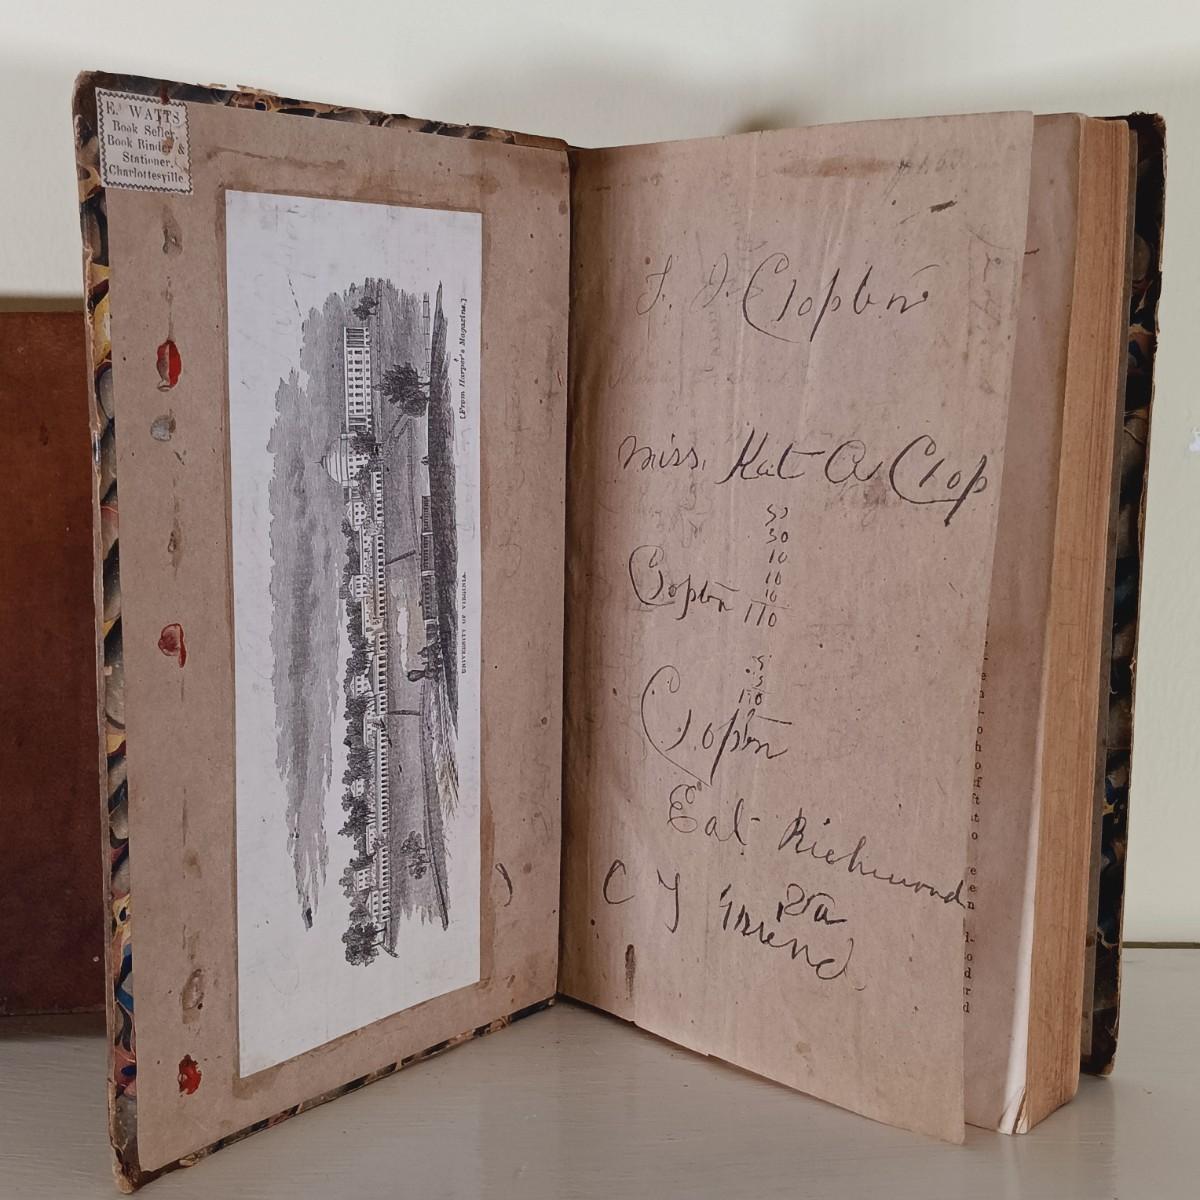 E. WATTS
Book Seller
Book Binder &
Stationer,
Charlottesville
[From Harper's Magazine.]
UNIVERSITY OF VIRGINIA.
J. J. Clopton
Miss. Kat A Clop
50
30
10
10
10
Clopton 110
5
5
Clopton
East Richmond
Va
C Y